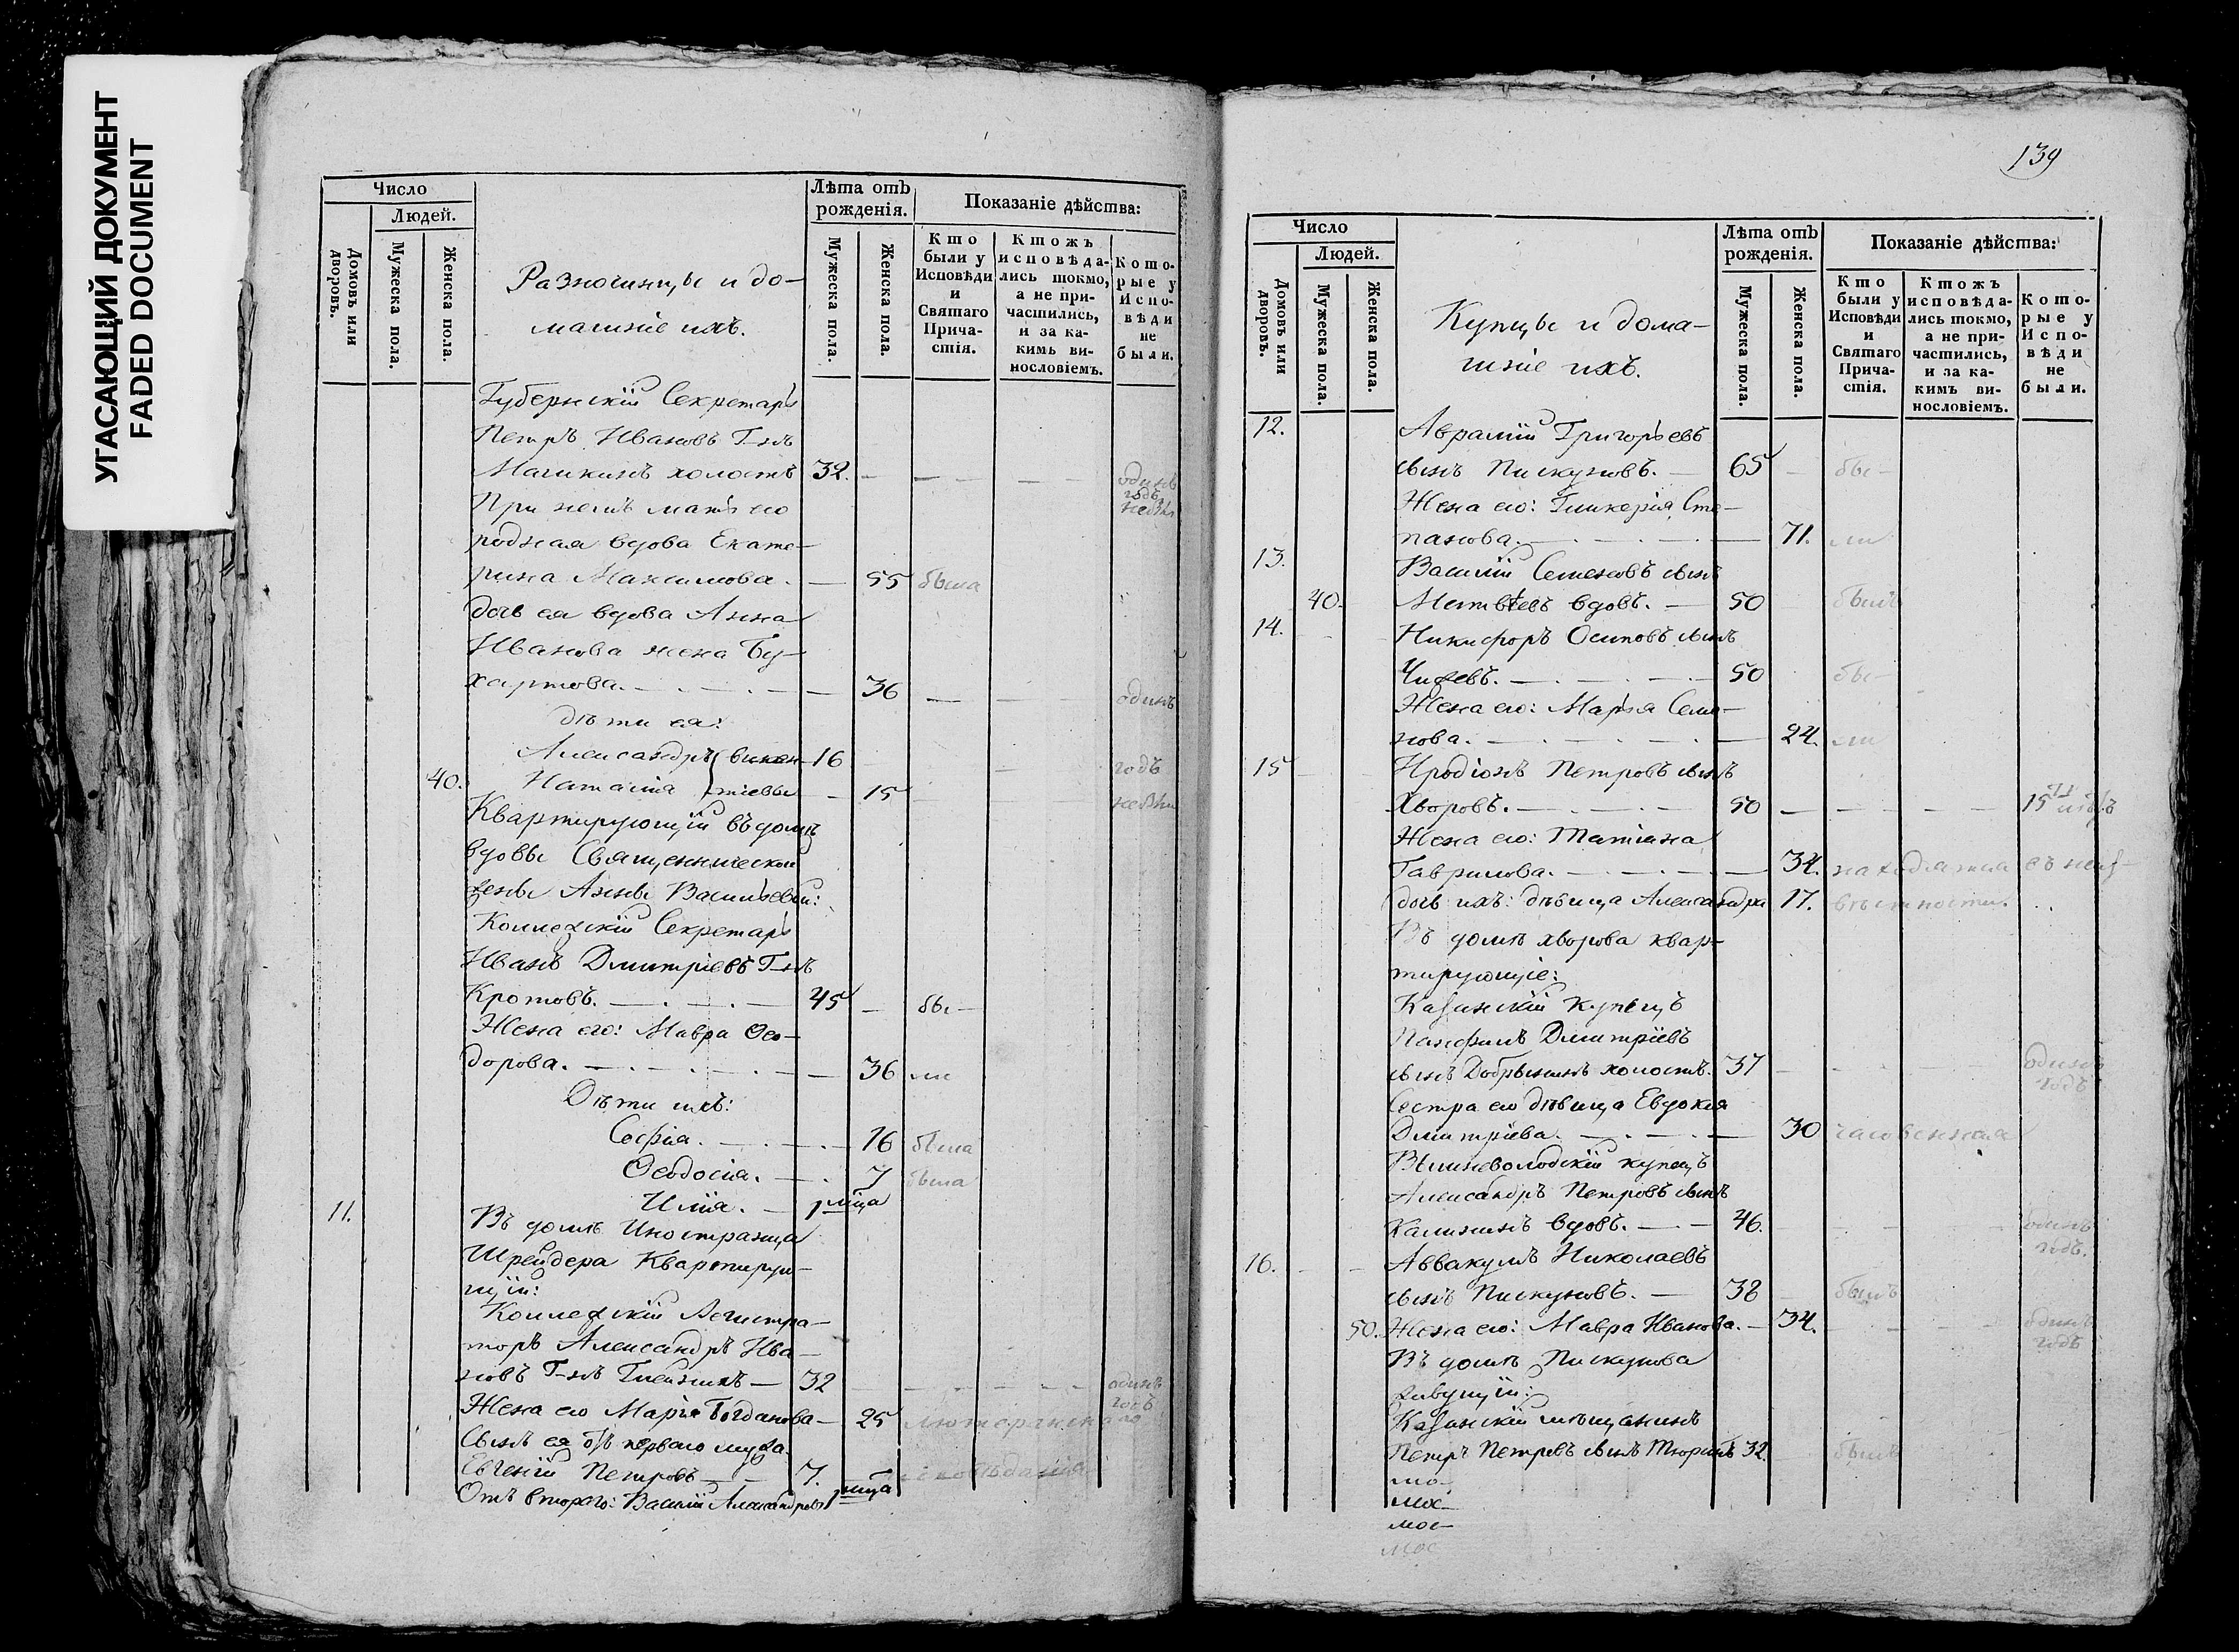 УГАСАЮЩИЙ ДОКУМЕНТ
FADED DOCUMENT
Число
Людей.
Домовъ или дворовъ.
Мужеска пола.
Женска пола.
Разночинцы и до-
машніе ихъ.
Лѣта отъ
рожденія.
Мужеска пола.
Женска пола.
Показаніе дѣйства:
Кто
были у
Исповѣди
и
Святаго
Прича-
стія.
Ктожъ
исповѣда-
лись токмо,
а не при-
частились,
и за ка-
кимъ ви-
нословіемъ.
Кото-
рые у
Испо-
вѣди
не
были.
Губернскій Секретарь
Петръ Ивановъ Г-нъ
холостъ 32. — — — — — одинъ
годъ
При немъ мать его
родная вдова Екате-
рина Максимова. — 55 была
дочь ея вдова Анна
Иванова жена Бу-
хартова. — . — . — — 36 — — одинъ
дѣти ея:
Александръ 16
годъ
40. Наталія — 15
Квартирующій въ домѣ
вдовы Священнической
жены Анны Васильевой:
Коллежскій Секретарь
Иванъ Дмитріевъ Г-нъ
Кротовъ. — . — . — 45 — бы-
Жена его: Мавра Ѳео-
дорова. — . — . — . — — 36 ли
Дѣти ихъ:
Софія. — . — . — 16 была
Ѳеодосія. — . 7 была
11. Юлія. — 1 мца
Въ домѣ Иностранца
Шрейдера Квартирую-
щій:
Коллежскій Регистра-
торъ Александръ Ива-
новъ Г-нъ — 32 — — — — одинъ
годъ
Жена его Марія Богданова — 25 лютеранскаго
Сынъ ея отъ перваго мужа
Евгеній Петровъ — — 7. исповѣданія
Отъ втораго: Василій Александровъ 1 мца
139
Число
Людей.
Домовъ или дворовъ.
Мужеска пола.
Женска пола.
Купцы и дома-
шніе ихъ.
Лѣта отъ
рожденія.
Мужеска пола.
Женска пола.
Показаніе дѣйства:
Кто
были у
Исповѣди
и
Святаго
Прича-
стія.
Ктожъ
исповѣда-
лись токмо,
а не при-
частились,
и за ка-
кимъ ви-
нословіемъ.
Кото-
рые у
Испо-
вѣди
не
были.
12. Аврамій Григорьевъ
сынъ Пискуновъ. — 65 — бы-
Жена его: Гликерія Сте-
панова. — . — . — . — 71. ли
13. Василій Семеновъ сынъ
40. Матвѣевъ вдовъ. — 50 былъ
14. Никифоръ Осиповъ сынъ
50 бы-
Жена его: Марья Семе-
нова. — . — . — . — 24. ли
15 Иродіонъ Петровъ сынъ
Хворовъ. — . — . — 50 — — — — 15
Жена его: Татіана
Гаврилова. — . — . — — 34. находятся въ неиз-
дочь ихъ: дѣвица Александра 17. вѣстности.
Въ домѣ Хворова квар-
тирующіе:
Казанскій купецъ
Панфилъ Дмитріевъ
сынъ Добрынинъ холостъ. 37 — одинъ
годъ
Сестра его дѣвица Евдокія
Дмитріева. — . — . — 30 часовенная
Вышневолодскій купецъ
Александръ Петровъ сынъ
Калининъ вдовъ. — . — 46. — одинъ
годъ.
16. Аввакумъ Николаевъ
сынъ Пискуновъ. — 38 былъ
50. Жена его: Мавра Иванова. — 34. — одинъ
годъ
Въ домѣ Пискунова
живущій:
Казанскій мѣщанинъ
Петръ Петровъ сынъ Тюринъ 32. былъ